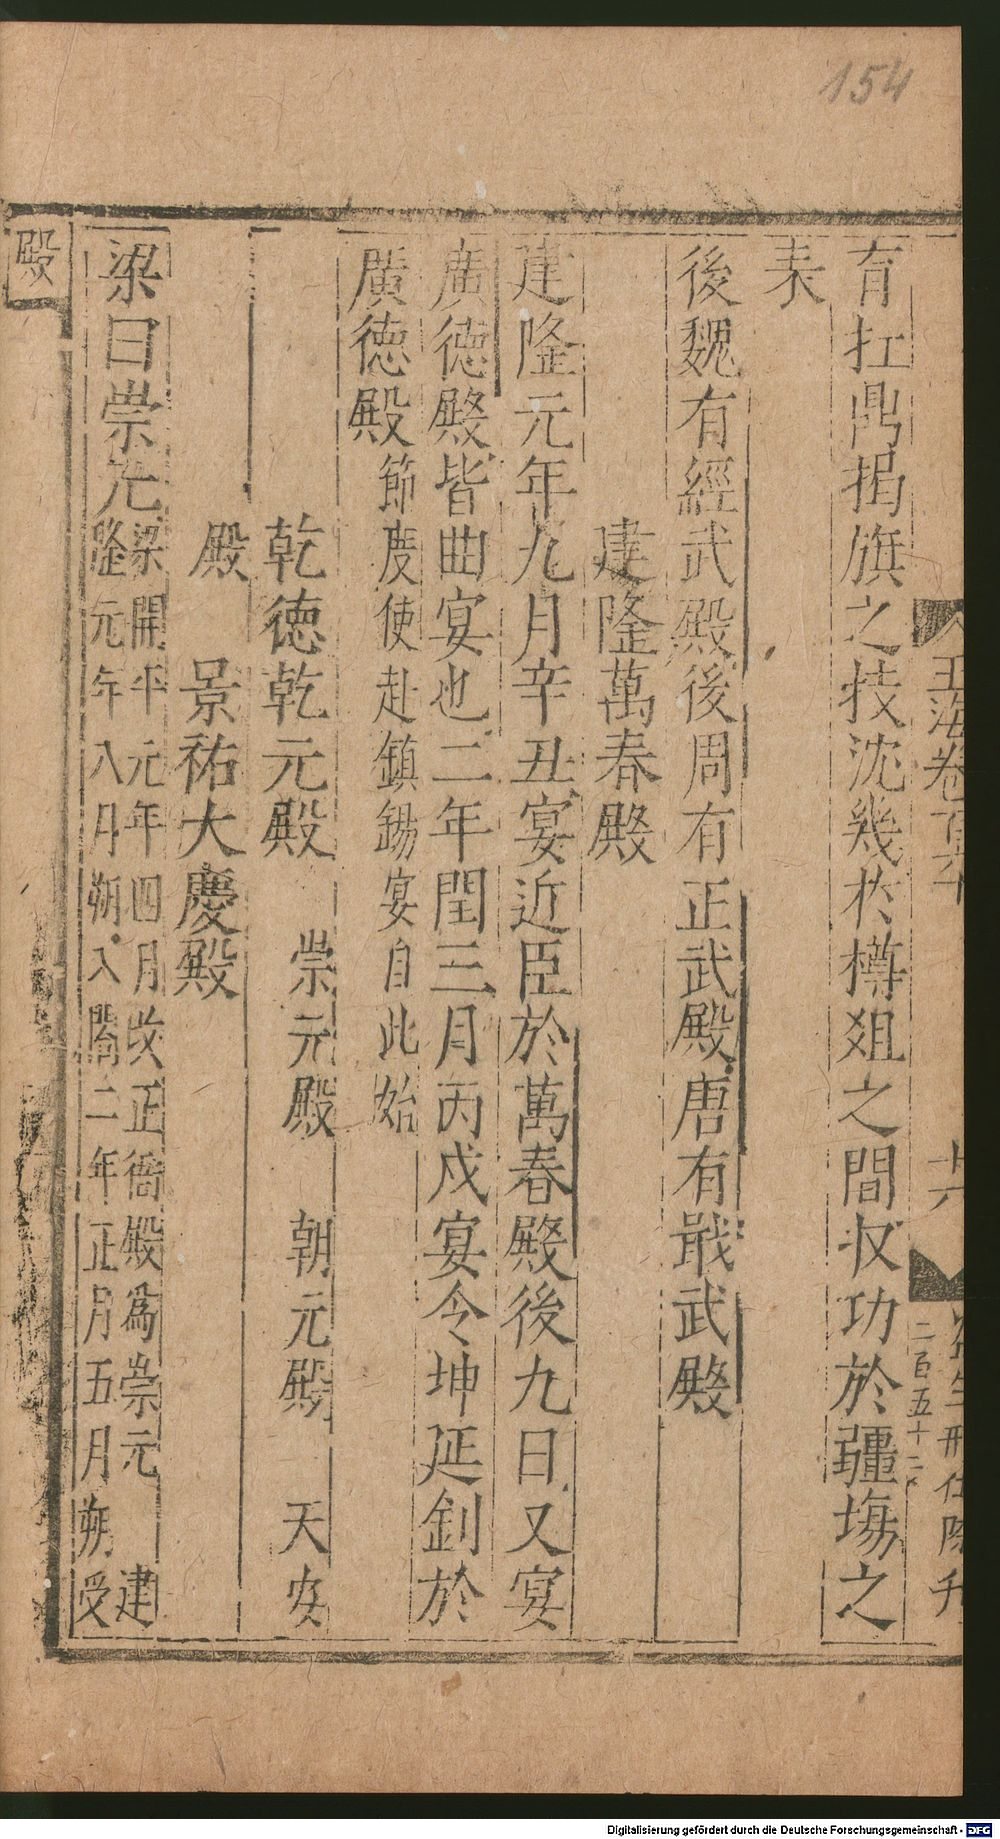 154
玉海卷百六十
十六
二百五十二
育扛鼎揭旗之技沈幾於樽俎之間収功於疆塲之
表
後魏有經武殿後周有正武殿唐有戢武殿
建隆萬春殿
建隆元年九月辛丑宴近臣於萬春殿後九日又宴
廣德殿皆曲宴也二年閏三月丙戌宴令坤延釗於
廣德殿節度使赴鎮錫宴自此始
乾德乾元殿 崇元殿 朝元殿 天安
殿 景祐大慶殿
梁曰崇元梁開平元年四月改正衙殿為崇元 建
隆元年八月朔入閤二年正月五月朔受
殿
Digitalisierung gefördert durch die Deutsche Forschungsgemeinschaft - DFG